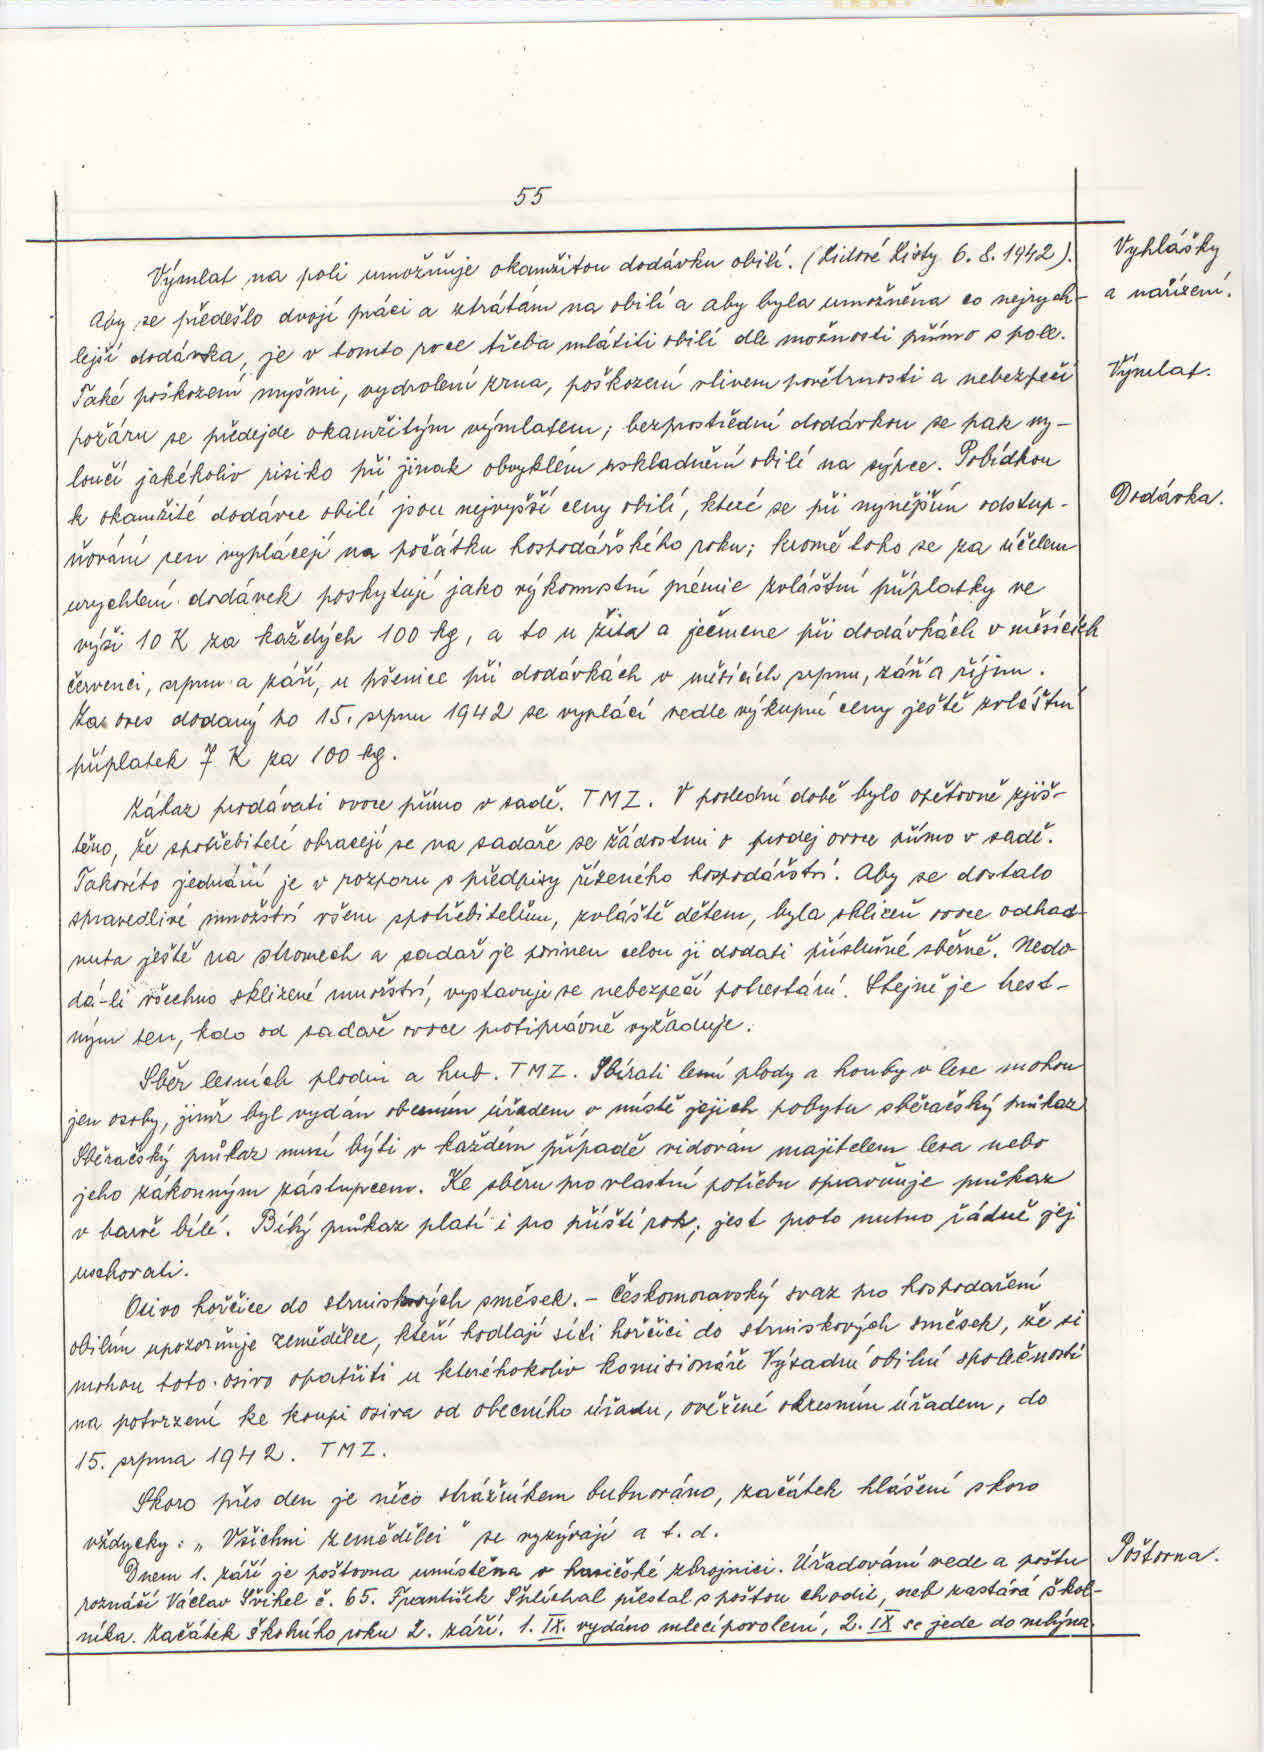 55
Vyhlášky
a nařízení.
Výmlat na poli umožňuje okamžitou dodávku obilí. (Lidové Listy 6.8.1942).
Aby se předešlo dvojí práci a ztrátám na obilí a aby byla umožněna co nejrych-
lejší dodávka, je v tomto roce třeba mlátiti obilí dle možnosti přímo s pole.
Výmlat.
Také poškození myšmi, vydrolení zrna, poškození vlivem povětrnosti a nebezpečí
požáru se předejde okamžitým výmlatem; bezprostřední dodávkou se pak vy-
loučí jakékoliv risiko při jinak obvyklém uskladnění obilí na sýpce. Pobídkou
Dodávka.
k okamžité dodávce obilí jsou nejvyšší ceny obilí, které se při nynějším odstup-
ňování cen vyplácejí na počátku hospodářského roku; kromě toho se za účelem
urychlení dodávek poskytují jako výkonnostní prémie zvláštní příplatky ve
výši 10 K za každých 100 kg, a to u žita a ječmene při dodávkách v měsících
červenci, srpnu a září, u pšenice při dodávkách v měsících srpnu, září a říjnu.
Za oves dodaný do 15. srpnu 1942 se vyplácí vedle výkupní ceny ještě zvláštní
příplatek 7 K za 100 kg.
Zákaz prodávati ovoce přímo v sadě. TMZ. V poslední době bylo opětovně zjiš-
těno, že spotřebitelé obracejí se na sadaře se žádostmi o prodej ovoce přímo v sadě.
Takovéto jednání je v rozporu s předpisy řízeného hospodářství. Aby se dostalo
spravedlivé množství všem spotřebitelům, zvláště dětem, byla sklizeň ovoce odhad-
nuta ještě na stromech a sadař je povinen celou ji dodati příslušné sběrně. Nedo-
dá-li všechno sklizené množství, vystavuje se nebezpečí potrestání. Stejně je trest-
ným ten, kdo od sadaře ovoce protiprávně vyžaduje.
Sběr lesních plodin a hub. TMZ. Sbírati lesní plody a houby v lese mohou
jen osoby, jimž byl vydán obecním úřadem v místě jejich pobytu sběračský průkaz
Sběračský průkaz musí býti v každém případě vidován majitelem lesa nebo
jeho zákonným zástupcem. Ke sběru pro vlastní potřebu opravňuje průkaz
v barvě bílé. Bílý průkaz platí i pro příští rok; jest proto nutno řádně jej
uschovati.
Osivo hořčice do strniskových směsek. - Českomoravský svaz pro hospodaření
obilím upozorňuje zemědělce, kteří hodlají síti hořčici do strniskových směsek, že si
mohou toto osivo opatřiti u kteréhokoliv komisionáře Výsadní obilní společnosti
na potvrzení ke koupi osiva od obecního úřadu, ověřené okresním úřadem, do
15. srpna 1942. TMZ.
Skoro přes den je něco strážníkem bubnováno, začátek hlášení skoro
vždycky: „Všichni zemědělci" se vyzývají a t. d.
Poštovna.
Dnem 1. září je poštovna umístěna v hasičské zbrojnici. Úřadování vede a poštu
roznáší Václav Švihel č. 65. František Šplíchal přestal s poštou choditi, neb zastává škol-
níka. Začátek školního roku 2. září. 1. IX. vydáno mlecí povolení, 2. IX se jede do mlýna.